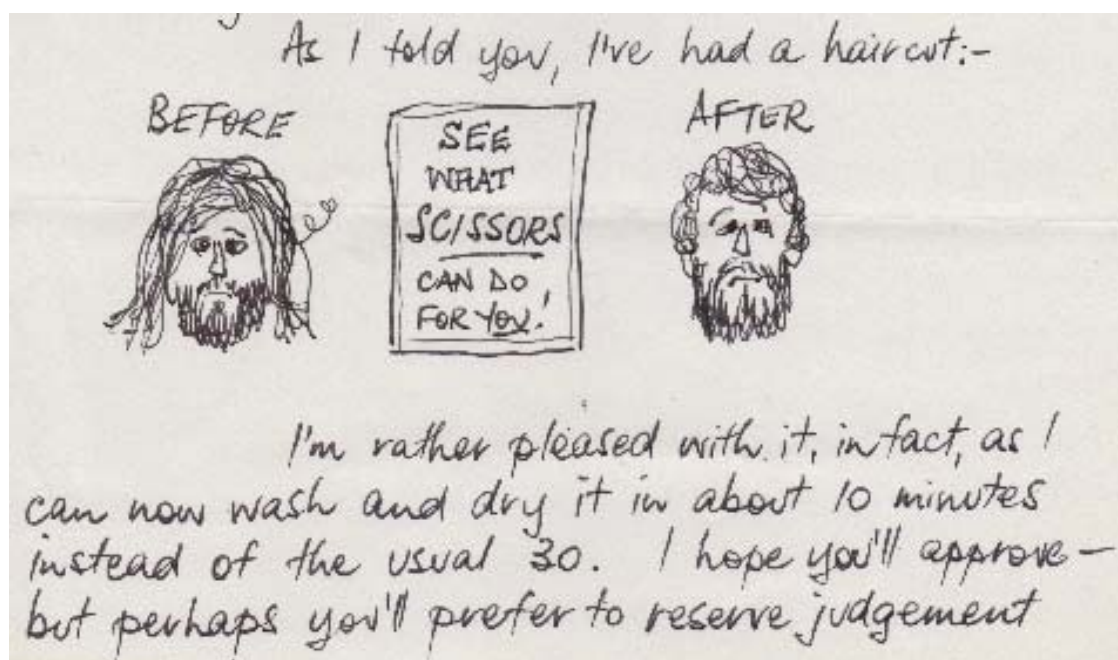 As I told you, I've had a haircut:-
BEFORE
SEE
WHAT
SCISSORS
CAN DO
FOR YOU!
AFTER
I'm rather pleased with it, in fact, as I
can now wash and dry it in about 10 minutes
instead of the usual 30. I hope you'll approve—
but perhaps you'll prefer to reserve judgement